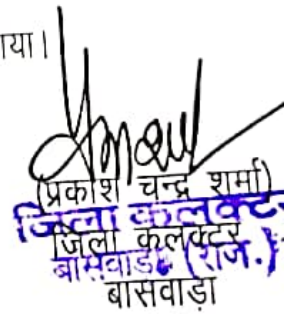 गया।
(प्रकाश चन्द्र शर्मा)
जिला कलक्टर
जिला कलक्टर
बांसवाड़ा (राज.)
बांसवाड़ा